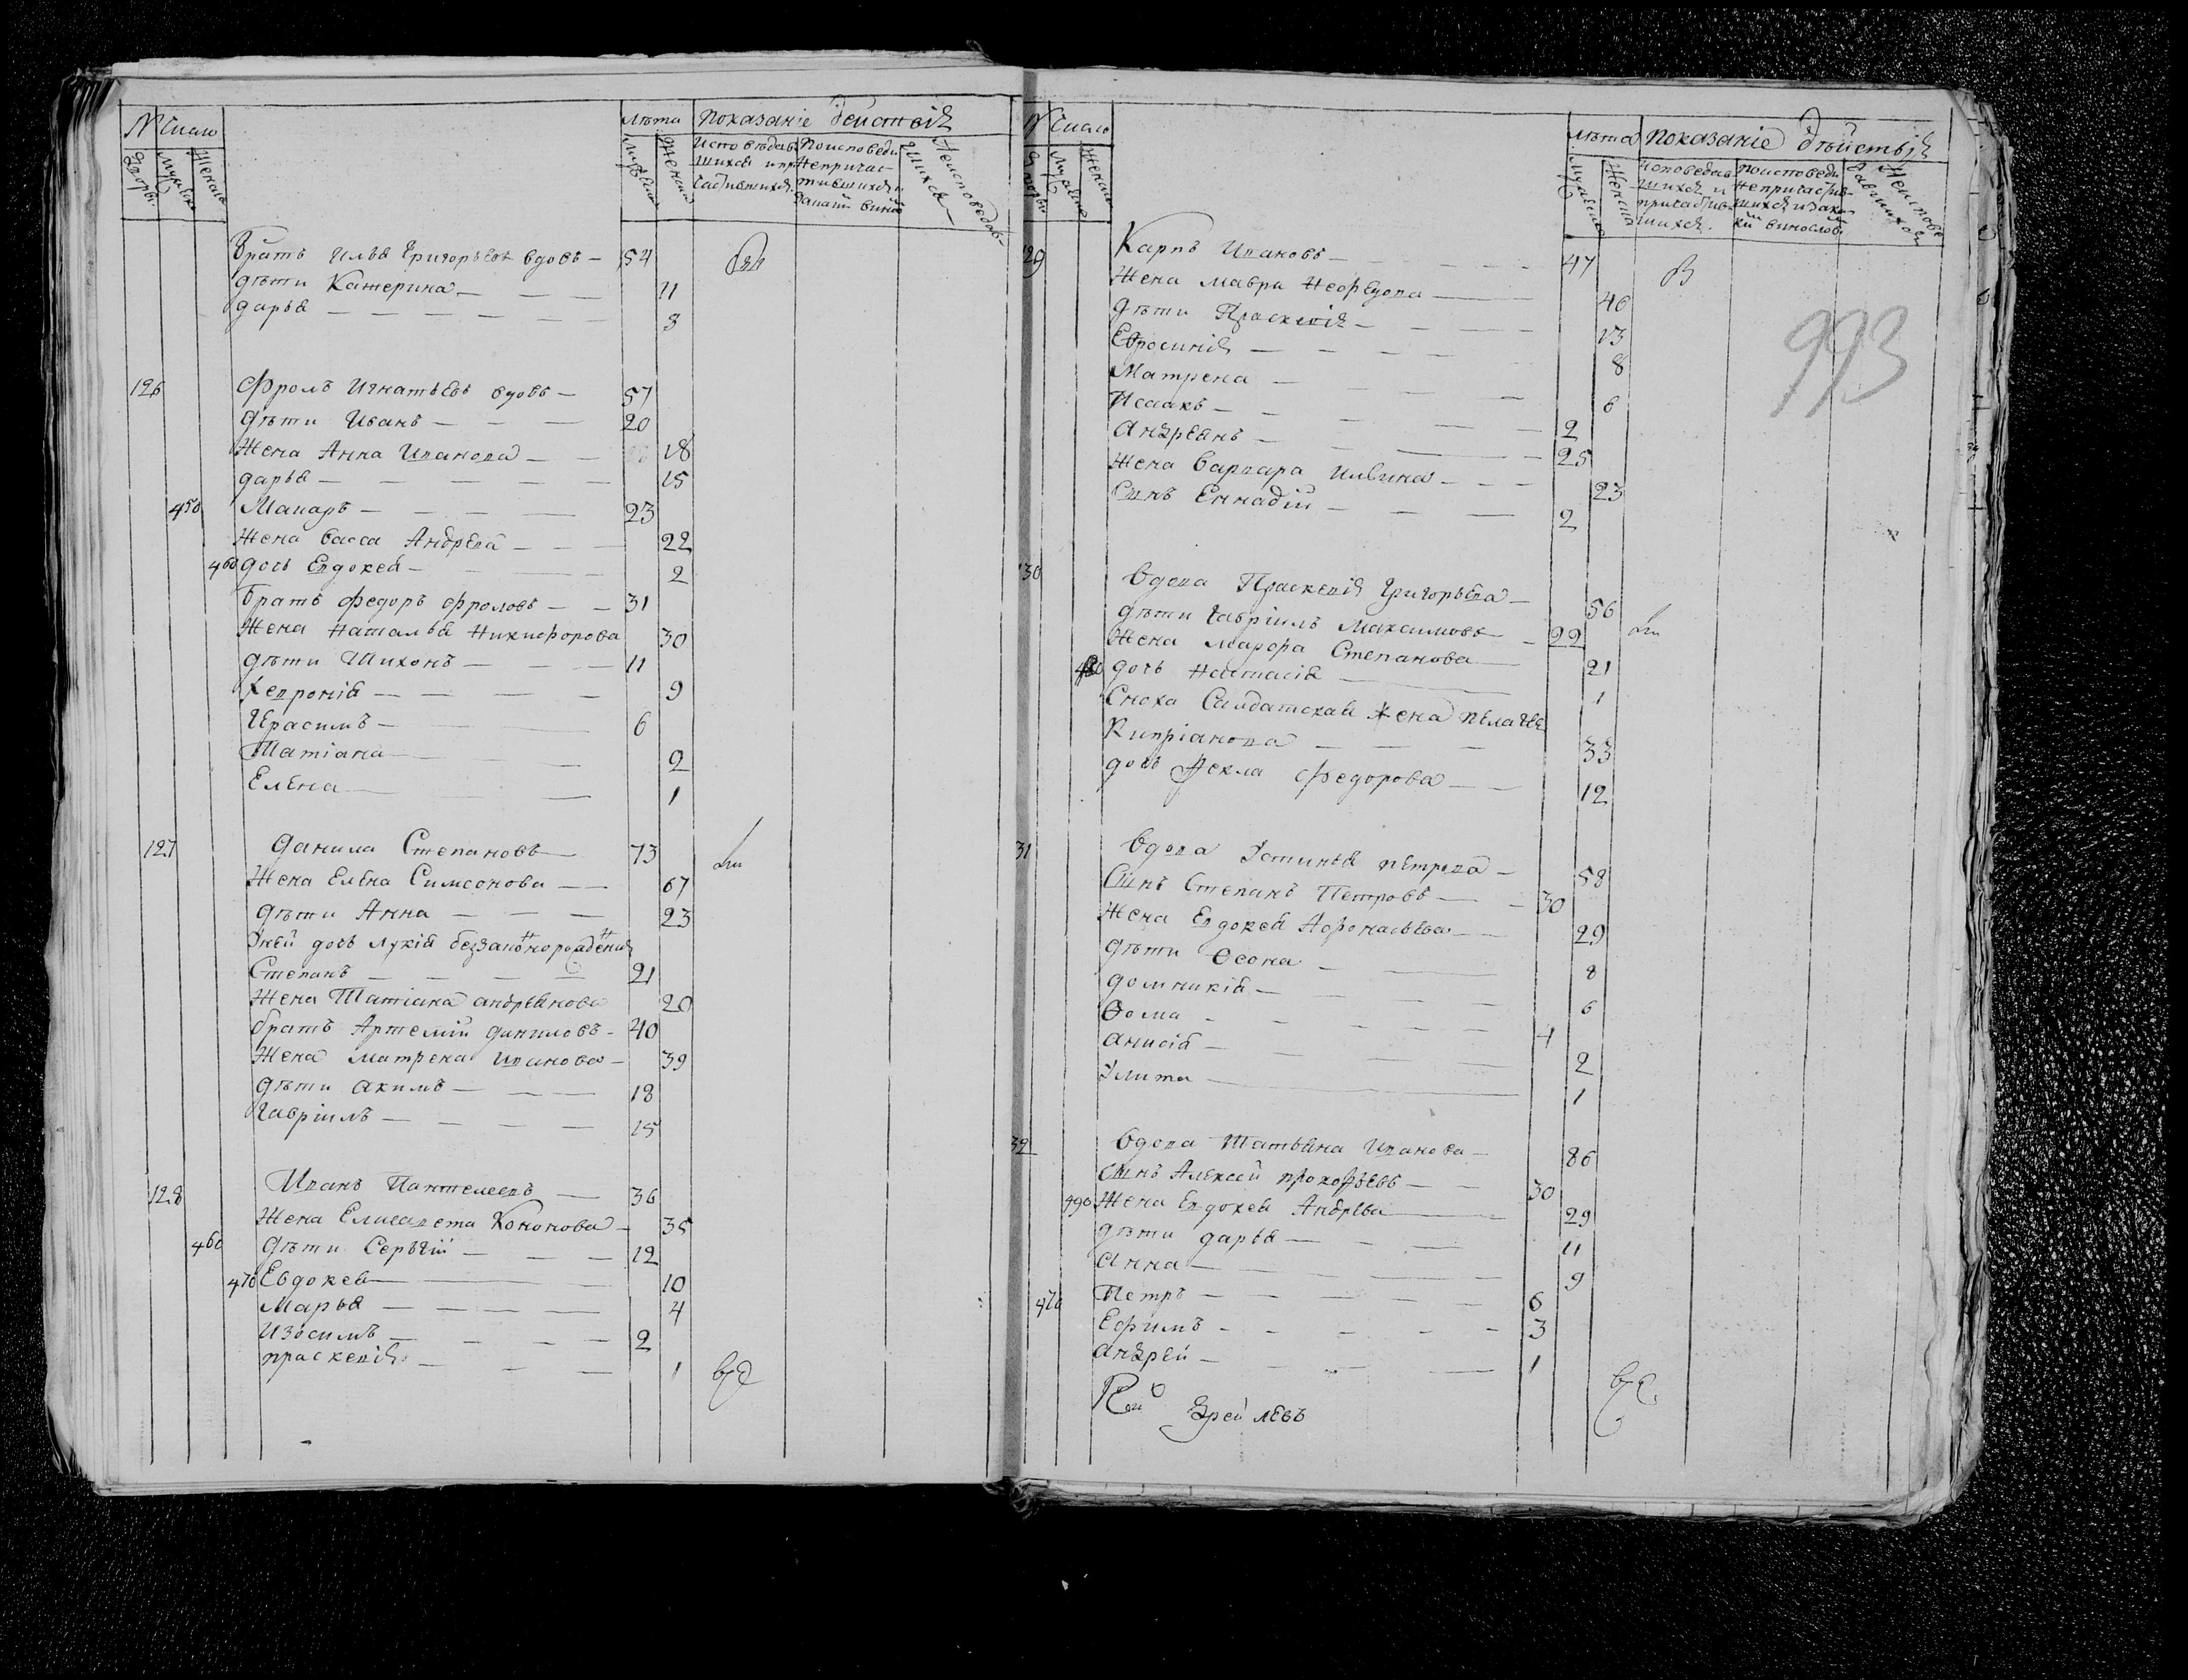 № Число
Лѣта Показаніе дѣйствія
Дворы. Мужеска Женска
Мужеска Женска
Исповѣдав- шихся и при- частившихся.
По исповеди непричас- тившихся и какай виной
Неисповедав- шихся
Братъ Илья Григорьевъ вдовъ — 54
дѣти Катерина — 11
дарья — 3
126 Фролъ Игнатьевъ вдовъ — 57
дѣти Иванъ — 20
Жена Анна Иванова — 18
дарья — 15
450 Макаръ — 23
Жена Васса Андрева — 22
460 дочь Евдокея — 2
братъ Федоръ Фроловъ — 31
Жена Наталья Никифорова 30
дѣти Тихонъ — 11
9
Герасимъ — 6
Татіана — 2
Елена — 1
127 Данила Степановъ — 73
Жена Елена Симеонова — 67
дѣти Анна — 23
У ней дочь Лукія беззаконорожденна
Степанъ — 21
Жена Татіана андреянова 20
братъ Артемій даниловъ — 40
Жена Матрена Иванова — 39
дѣти акимъ — 18
Гавріилъ — 15
128 Иванъ Пантелеевъ — 36
Жена Елисавета Кононова — 35
460 дѣти Сергѣй — 12
470 Евдокея — 10
Марья — 4
Изосимъ — 2
праскевія — 1
№ Число
Лѣта Показаніе дѣйствія
Дворы Мужеска Женска
Мужеска Женска
Исповедав- шихся и причастив- шихся.
По исповеди непричастив- шихся и како- й винослов.
Неисповедавшихся
993
129 Карпъ Ивановъ — 47
Жена мавра Неофедова — 46
дѣти Праскевія — 13
Евросинія — 8
Матрена — 6
Исаакъ — 2
андреянъ — 25
Жена варвара Ильина — 23
Сынъ Еннадій — 2
130 Вдова Праскевія Григорьева — 56
дѣти Гавріилъ Максимовъ — 22
Жена Марфа Степанова — 21
480 дочь Настасія — 1
Сноха Салдатская жена пелагея
Кипріанова — 33
дочь Фекла Федорова — 12
31 Вдова Устинья петрова — 58
Сынъ Степанъ Петровъ — 30
Жена Евдокея Афонасьева — 29
дѣти Ѳеона — 8
домникія — 6
Ѳома — 4
анисія — 2
Улита — 1
32 Вдова Татьяна Иванова — 86
сынъ Алексей прокофьевъ — 30
490 Жена Евдокея Андрева — 29
дѣти дарья — 11
Анна — 9
470 Петръ — 6
Ефимъ — 3
андрей — 1
Ерей левъ